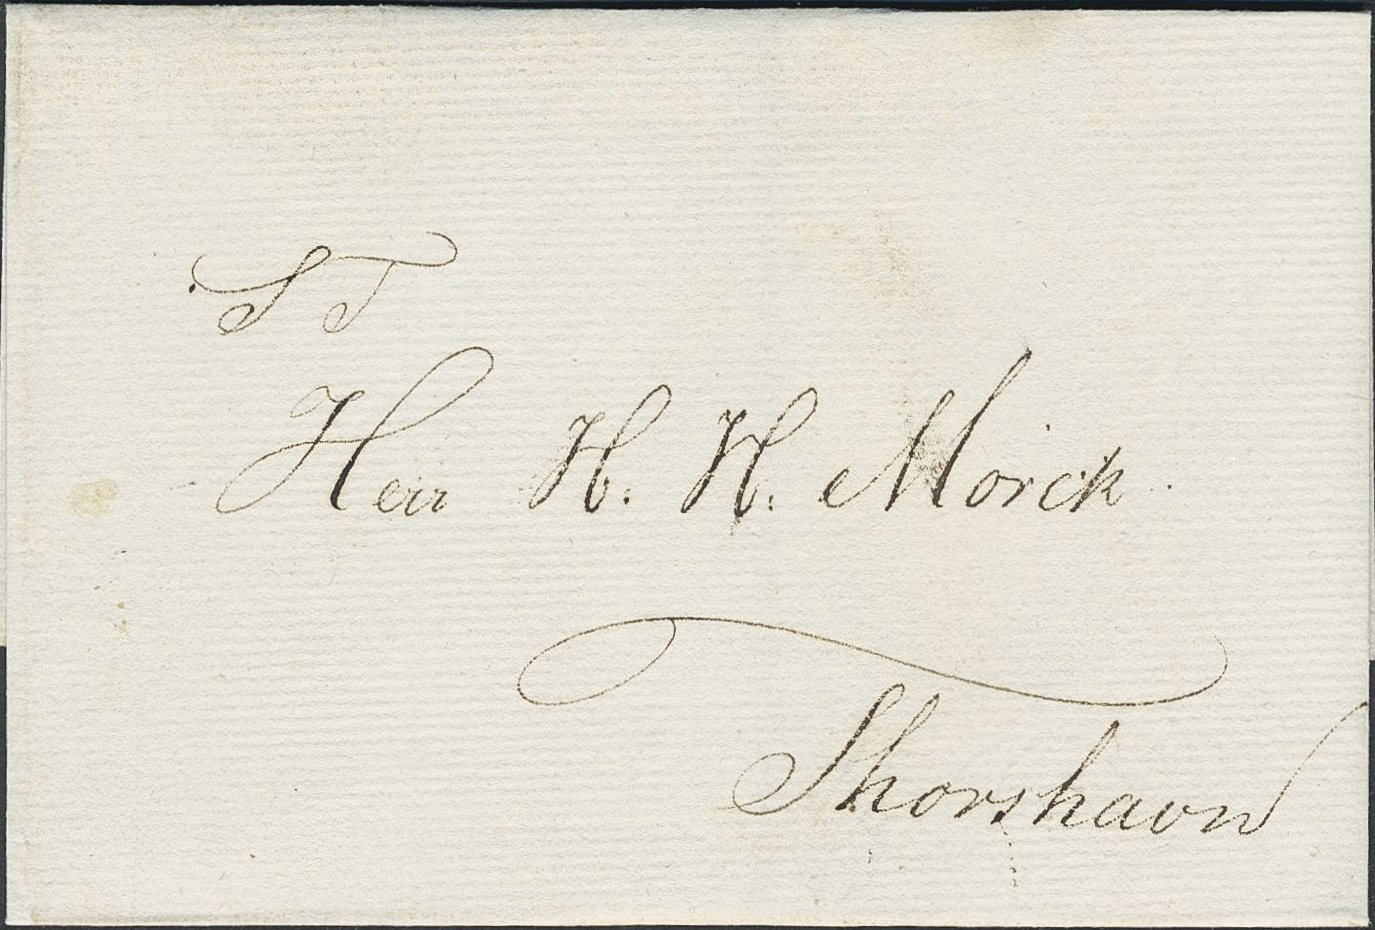 S T
Herr H. H. Mörck
Thorshavn